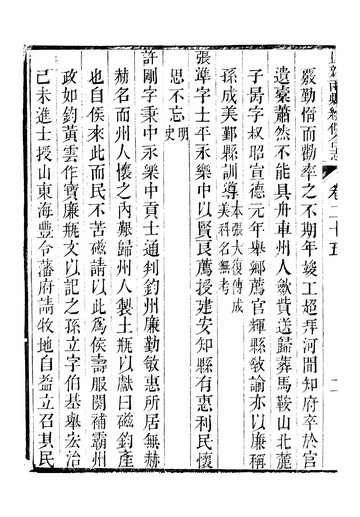 崑新兩縣續修合志 卷二十五
嚴勤惰而勸率之不期年竣工超拜河間知府卒於官
遺橐蕭然不能具舟車州人斂貲送歸葬馬鞍山北麓
子昺字叔昭宣德元年舉鄉薦官輝縣教諭亦以廉稱
孫成美鄞縣訓導本張大復傳成美科名無考
張準字士平永樂中以賢良薦授建安知縣有惠利民懷
思不忘明史
許剛字秉中永樂中貢士通判鈞州廉勤敏惠所居無赫
赫名而州人懷之內艱歸州人製土瓶以獻曰磁鈞產
也自侯來此而民不苦磁請以此為侯壽服闋補霸州
政如鈞黃雲作寶廉瓶文以記之孫立字伯基舉宏治
己未進士授山東海豐令藩府請牧地自益立召其民